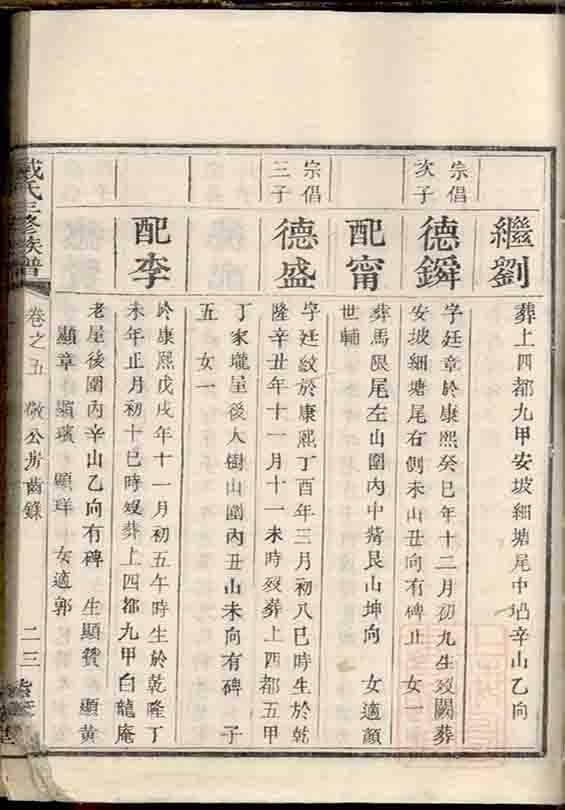 繼劉
葬上四都九甲安坡細塘尾中坫辛山乙向
宗倡
次子
德鏻
字廷章於康熙癸巳年十二月初九生歿闕葬
安坡細塘尾右側未山丑向有碑止 女一
配甯
葬馬限尾左山圍內中藉艮山坤向 女適顏
世輔
宗倡
三子
德盛
字廷紋於康熙丁酉年三月初八巳時生於乾
隆辛丑年十一月十一未時歿葬上四都五甲
丁家壠屋後大樹山圍內丑山未向有碑 子
五 女一
配李
於康熙戊戌年十一月初五午時生於乾隆丁
未年正月初十巳時歿葬上四都九甲白龍庵
老屋後圍內辛山乙向有碑 生顯贊 顯黃
顯章 顯璸 顯珜 女適郭
戴氏三修族譜
卷之五 敬公房齒錄
二三